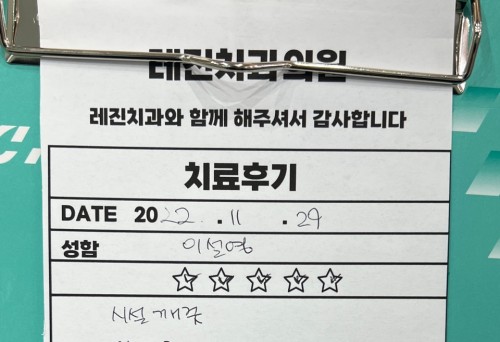 레진치과의원
레진치과와 함께 해주셔서 감사합니다
치료후기
DATE 2022.11.29
성함 이설영
☆☆☆☆☆
시설 깨끗